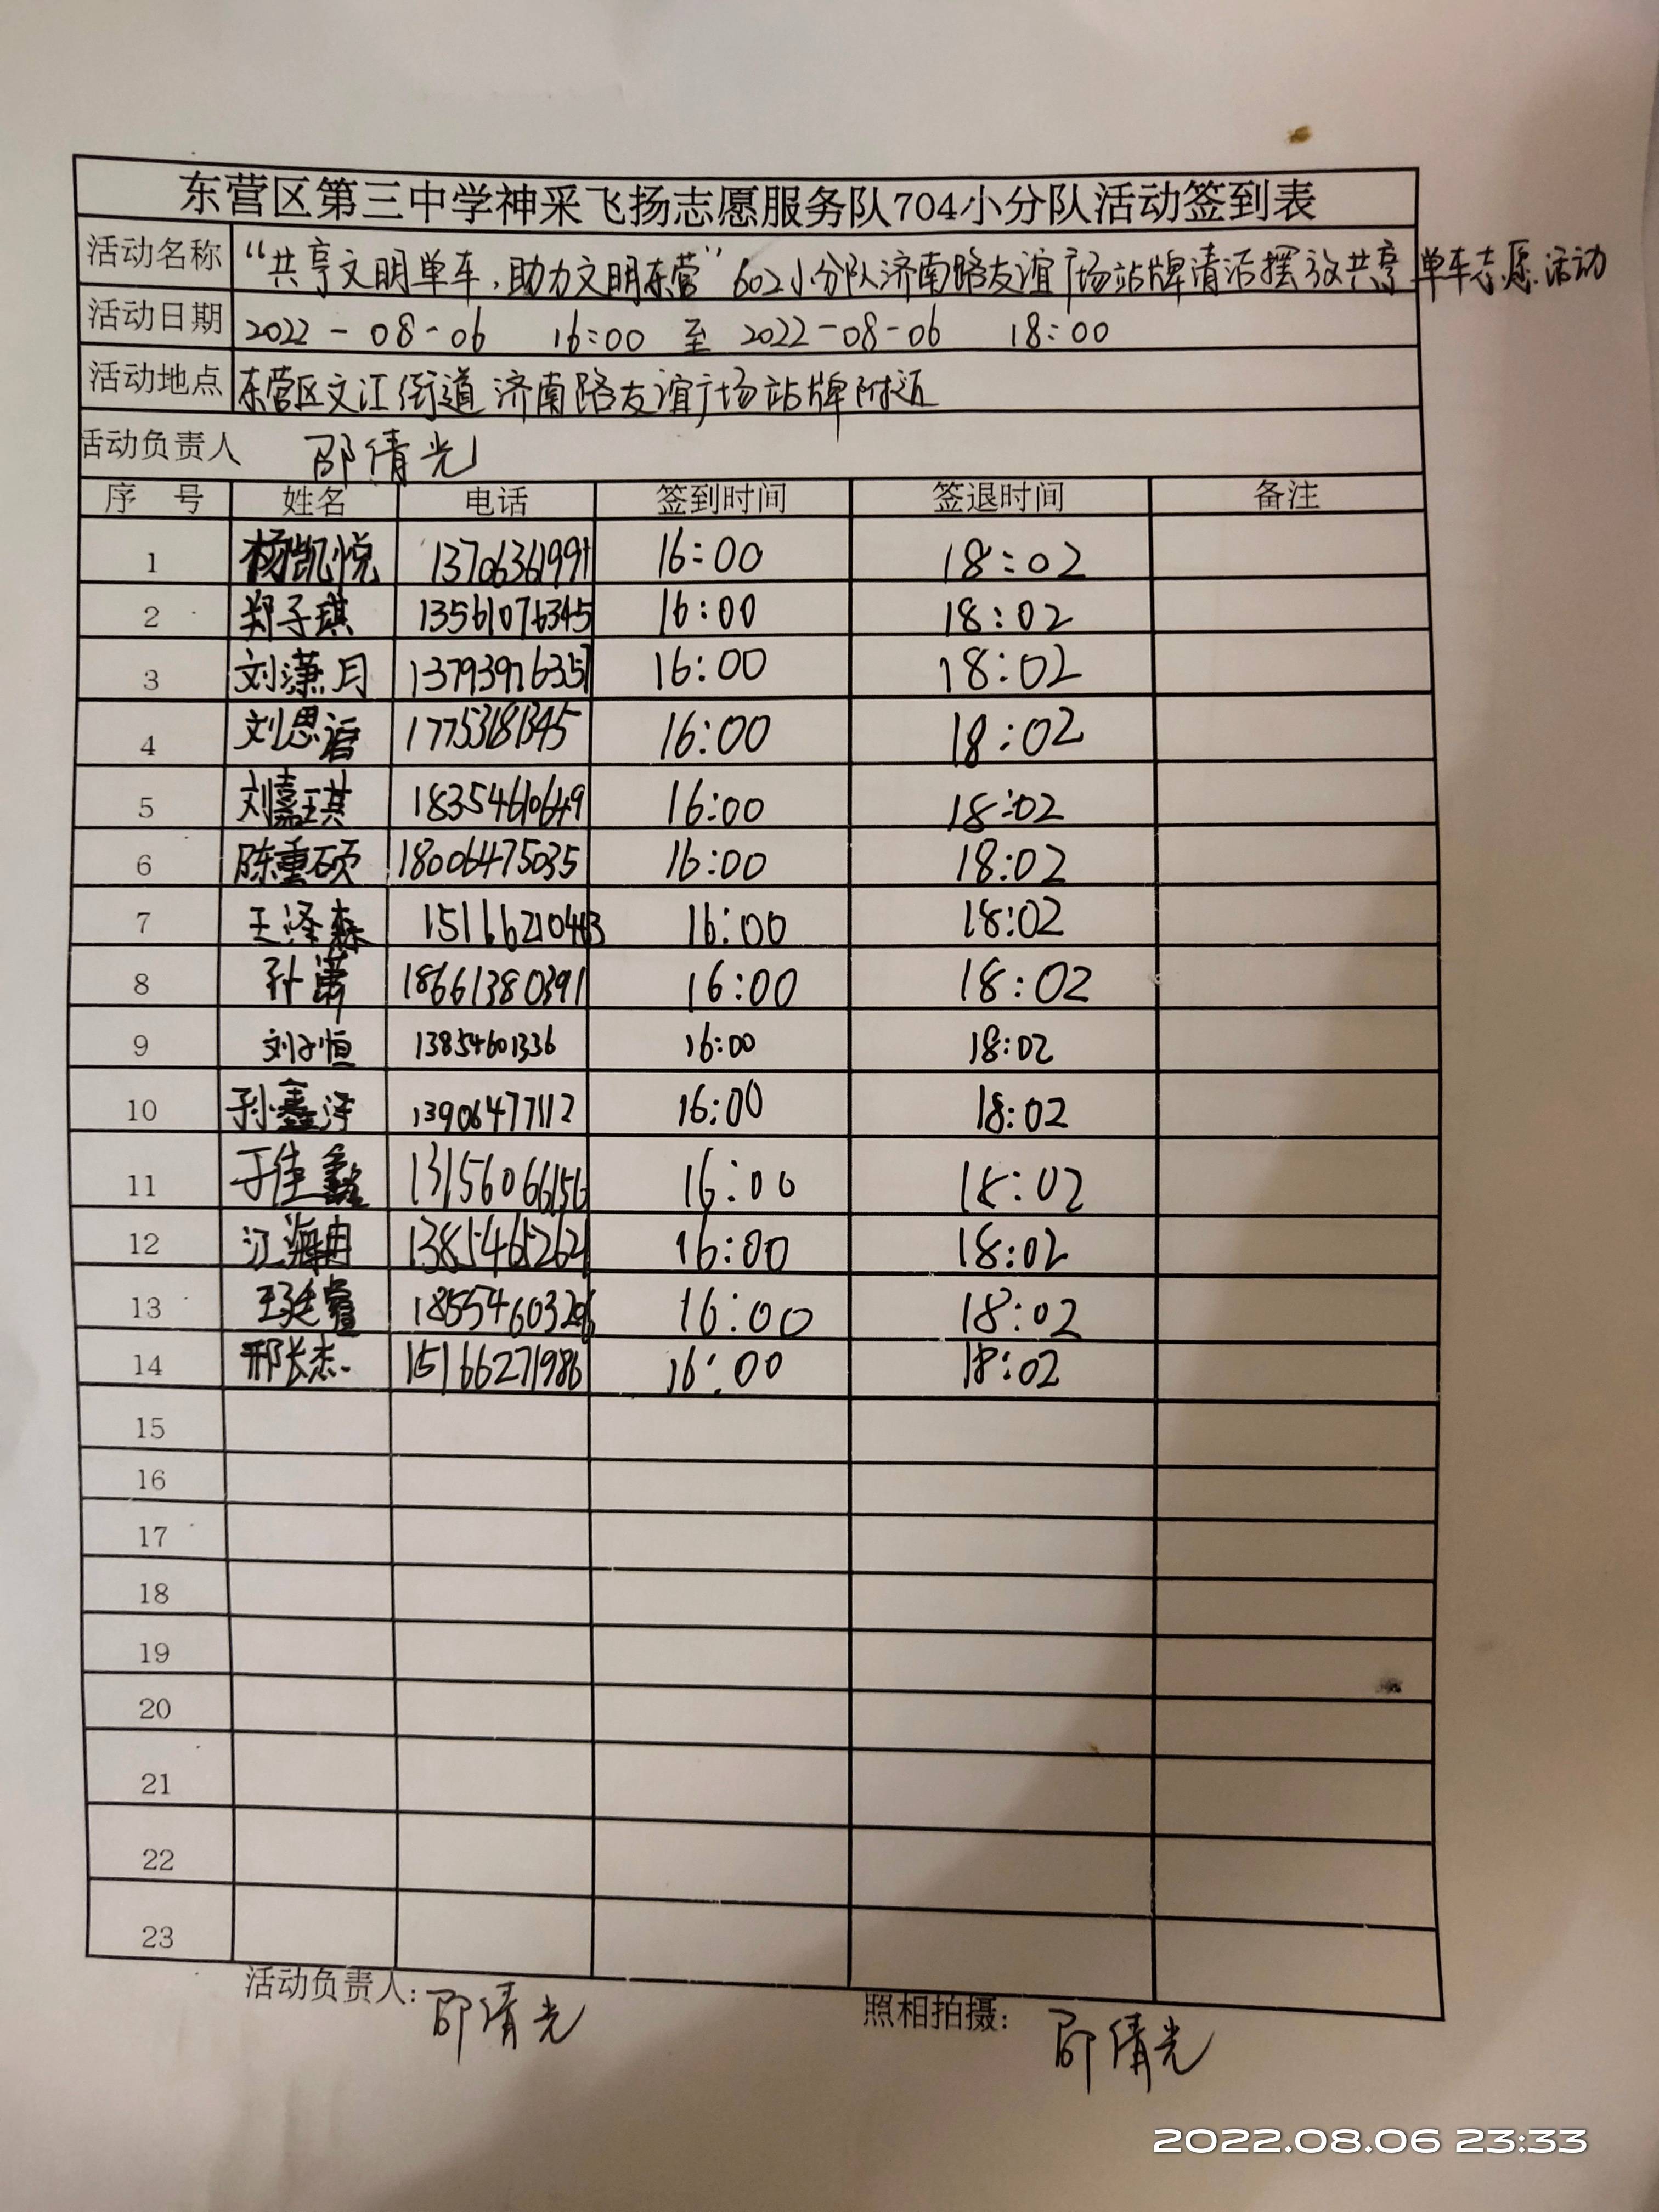 东营区第三中学神采飞扬志愿服务队704小分队活动签到表
活动名称 “共享文明单车,助力文明东营”602小分队济南路友谊广场站牌清洁摆放共享单车志愿活动
活动日期 2022-08-06 16:00 至 2022-08-06 18:00
活动地点 东营区文汇街道济南路友谊广场站牌附近
活动负责人 邵倩光
序号 姓名 电话 签到时间 签退时间 备注
1 杨凯悦 13706361991 16:00 18:02
2 郑子琪 13561076345 16:00 18:02
3 刘潇月 13793976357 16:00 18:02
4 刘思语 17753181345 16:00 18:02
5 刘嘉琪 18354610649 16:00 18:02
6 陈重硕 18006475035 16:00 18:02
7 王泽森 15166210463 16:00 18:02
8 孙潇 18661380391 16:00 18:02
9 刘子恒 13854601336 16:00 18:02
10 孙鑫洋 13906477112 16:00 18:02
11 于佳鑫 13156066156 16:00 18:02
12 江海冉 13854652621 16:00 18:02
13 王廷萱 18554603206 16:00 18:02
14 邢长杰 15166271986 16:00 18:02
15
16
17
18
19
20
21
22
23
活动负责人: 邵倩光 照相拍摄: 邵倩光
2022.08.06 23:33